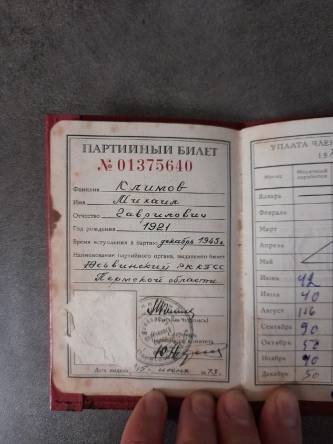 ПАРТИЙНЫЙ БИЛЕТ
№ 01375640
Фамилия Климов
Имя Михаил
Отчество Гаврилович
Год рождения 1921
Время вступления в партию декабрь 1945г.
Наименование партийного органа, выдавшего билет
Юсьвинский РК КПСС
Пермской области
Дата выдачи 15 1973г.
УПЛАТА ЧЛЕН
Месяц Месячный заработок
Январь
Февраль
Март
Апрель
Май
Июнь 42
Июль 40
Август 116
Сентябрь 90
Октябрь 50
Ноябрь 90
Декабрь 50